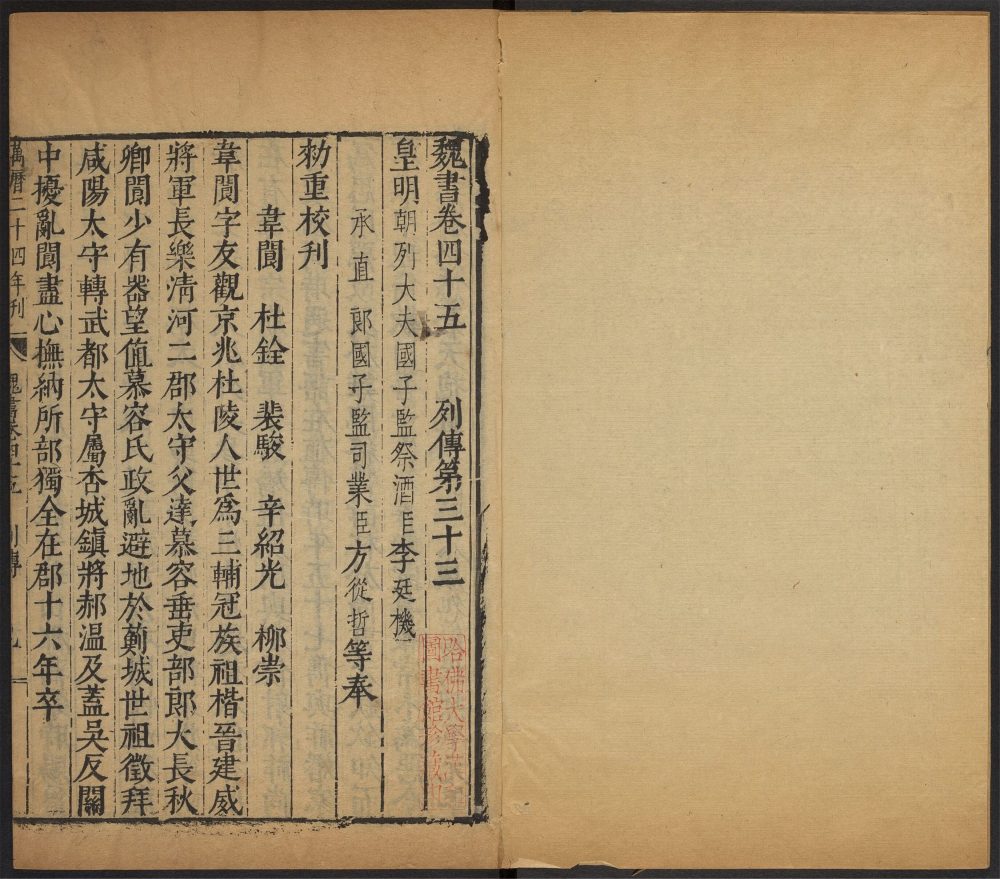 魏書卷四十五　列傳第三十三
皇明朝列大夫國子監祭酒臣李廷機
承直郎國子監司業臣方從哲等奉
勑重校刊
韋閬　杜銓　裴駿　辛紹先　柳崇
韋閬字友觀京兆杜陵人世爲三輔冠族祖楷晉建威
將軍長樂淸河二郡太守父逵慕容垂吏部郎大長秋
卿閬少有器望值慕容氏政亂避地於薊城世祖徵拜
咸陽太守轉武都太守屬杏城鎭將郝温及蓋吳反關
中擾亂閬盡心撫納所部獨全在郡十六年卒
萬曆二十四年刊
魏書卷四十五　列傳　一
哈佛大學漢和
圖書館珍藏印